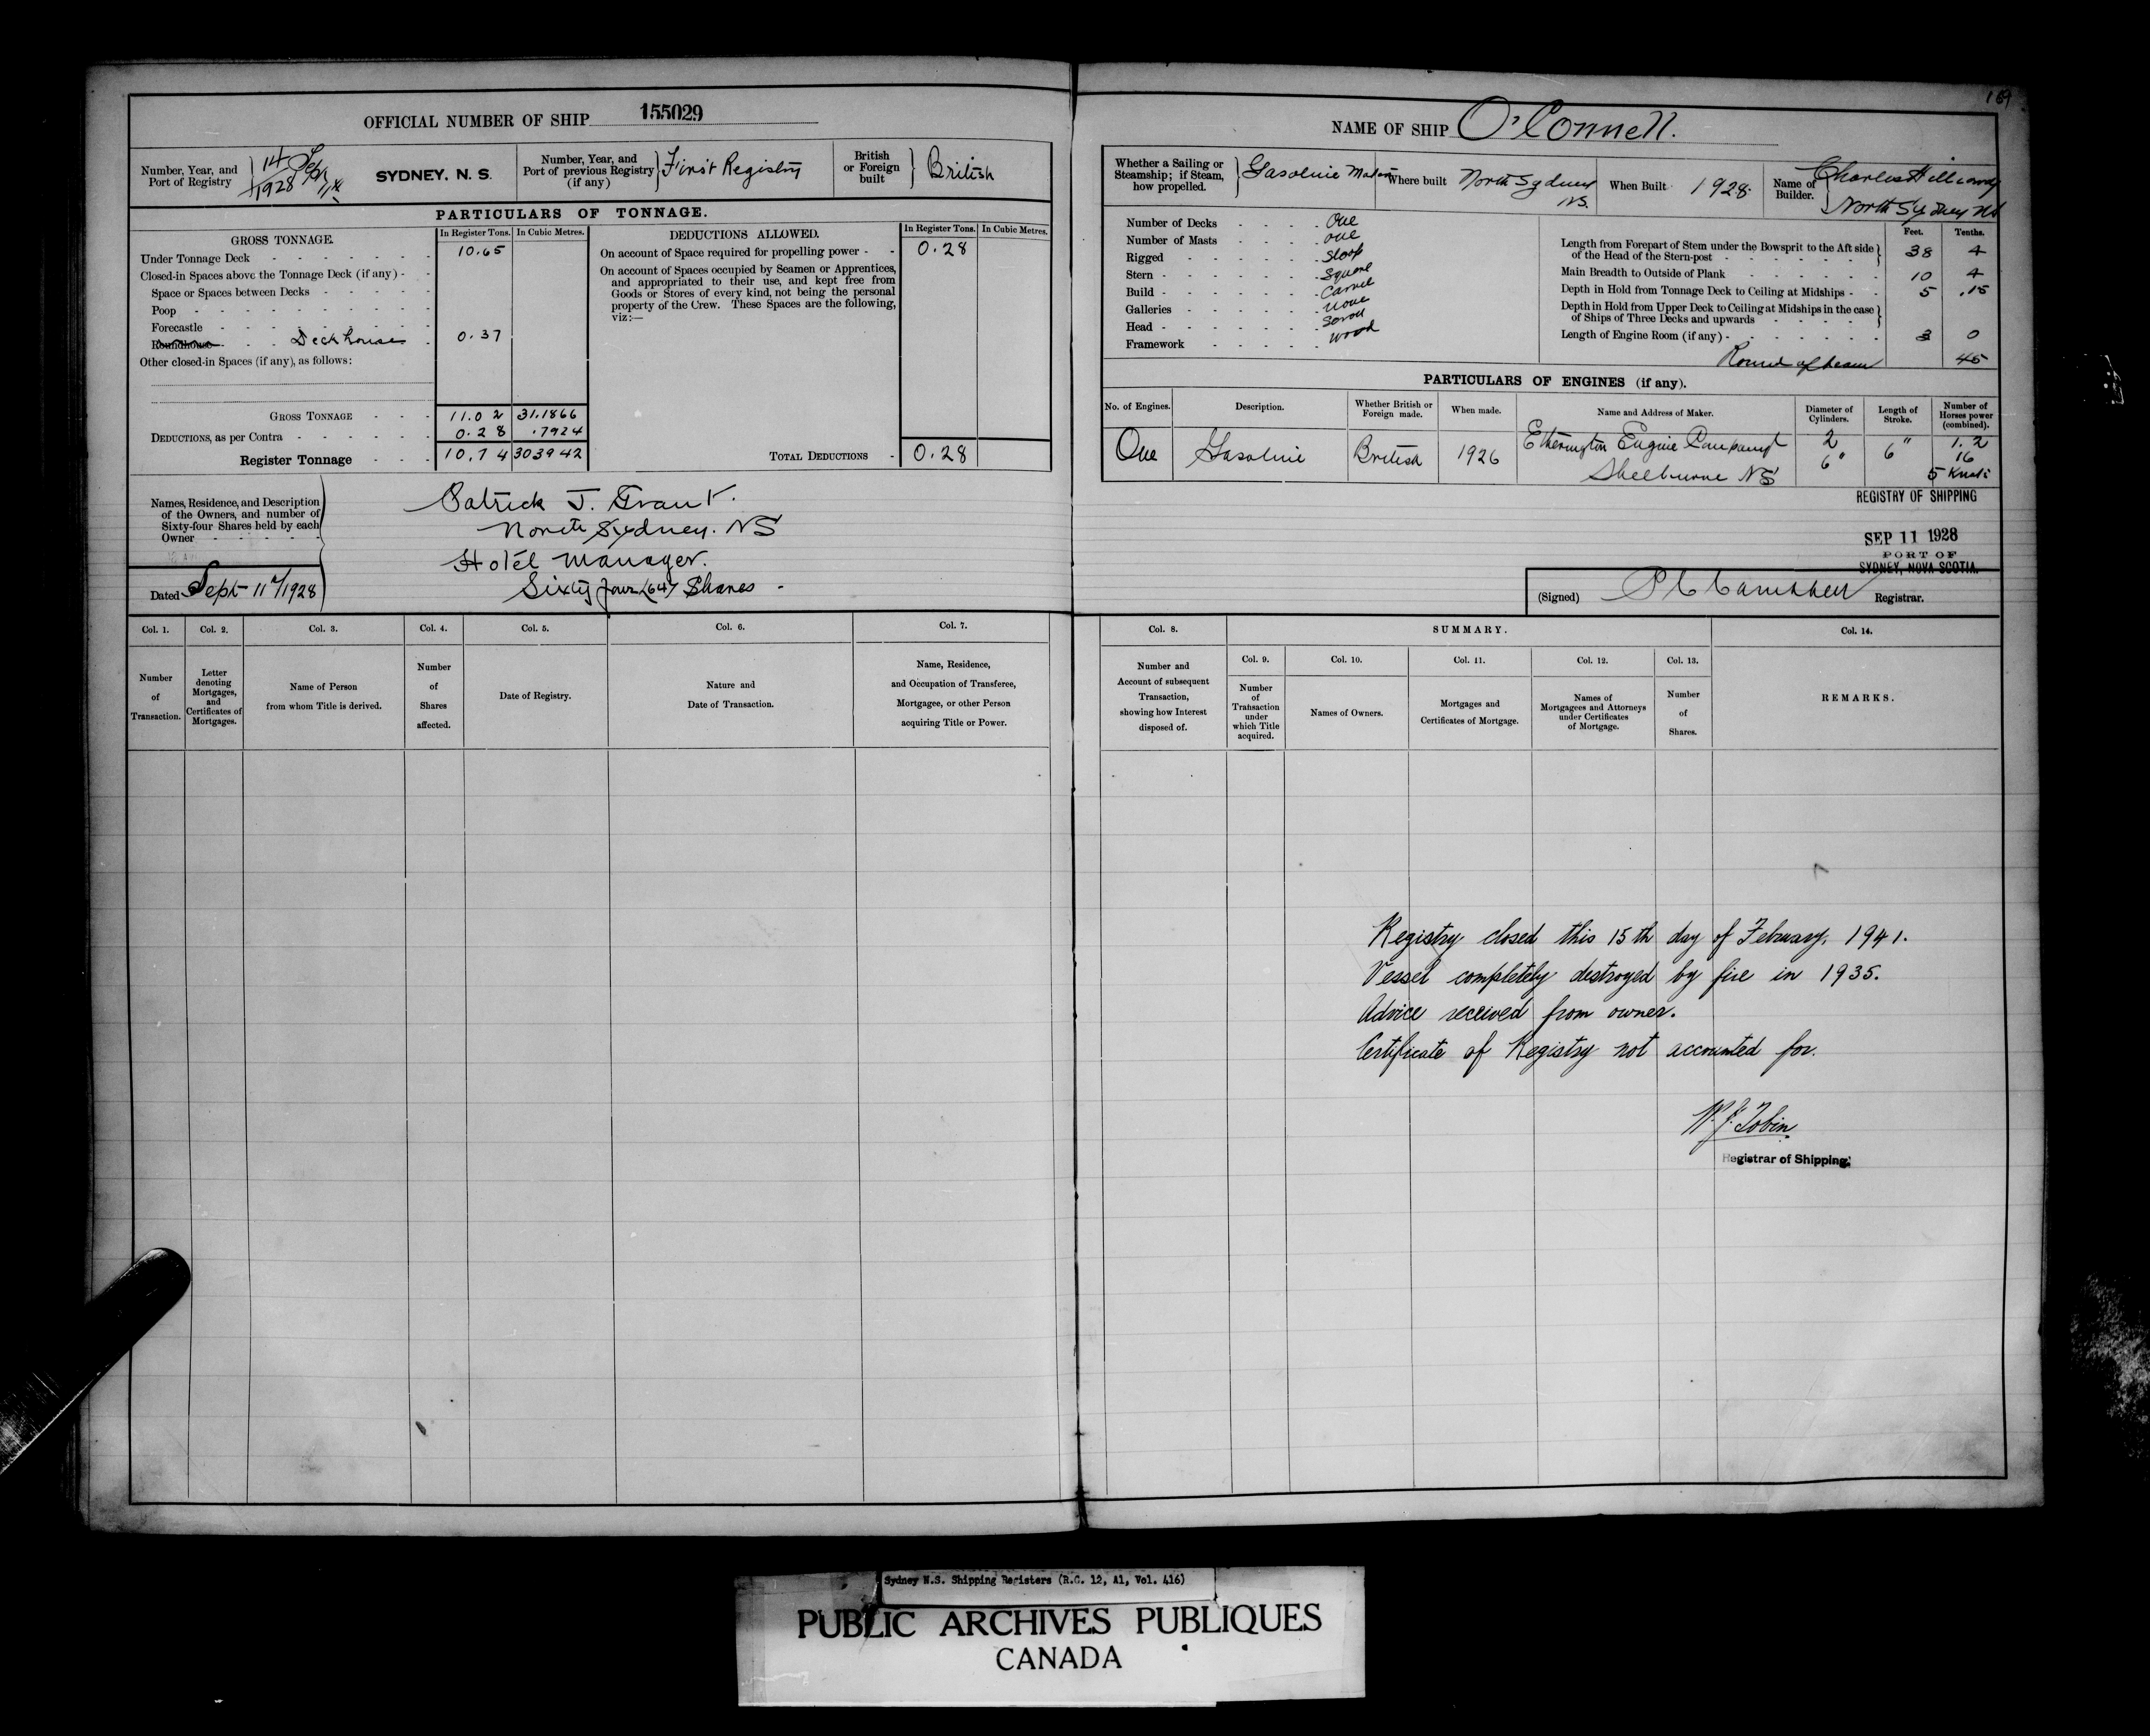 169
OFFICIAL NUMBER OF SHIP 155029
Number, Year, and Port of Registry 14 1928 SYDNEY, N. S.
Number, Year, and Port of previous Registry (if any) First Registry
British or Foreign built British
PARTICULARS OF TONNAGE.
GROSS TONNAGE. In Register Tons. In Cubic Metres.
Under Tonnage Deck 10.65
Closed-in Spaces above the Tonnage Deck (if any)
Space or Spaces between Decks
Poop
Forecastle
Roundhouse Deck house 0.37
Other closed-in Spaces (if any), as follows:
GROSS TONNAGE 11.02 31.1866
DEDUCTIONS, as per Contra 0.28 .7924
Register Tonnage 10.74 303942
DEDUCTIONS ALLOWED. In Register Tons. In Cubic Metres.
On account of Space required for propelling power 0.28
On account of Spaces occupied by Seamen or Apprentices,
and appropriated to their use, and kept free from
Goods or Stores of every kind, not being the personal
property of the Crew. These Spaces are the following,
viz:—
TOTAL DEDUCTIONS 0.28
Names, Residence, and Description
of the Owners, and number of
Sixty-four Shares held by each
Owner
Patrick J. Grant.
North Sydney. NS
Hotel Manager.
Sixty four (64) Shares -
Dated Sept 11th/1928
NAME OF SHIP O'Connell.
Whether a Sailing or Steamship; if Steam, how propelled. Gasoline
Where built North Sydney NS.
When Built 1928.
Name of Builder. Charles North Sydney NS
Number of Decks One
Number of Masts One
Rigged Sloop
Stern Square
Build Carvel
Galleries None
Head Scroll
Framework Wood
Feet. Tenths.
Length from Forepart of Stem under the Bowsprit to the Aft side
of the Head of the Stern-post 38 4
Main Breadth to Outside of Plank 10 4
Depth in Hold from Tonnage Deck to Ceiling at Midships 5 .15
Depth in Hold from Upper Deck to Ceiling at Midships in the case
of Ships of Three Decks and upwards
Length of Engine Room (if any) 3 0
Round of beam 45
PARTICULARS OF ENGINES (if any).
No. of Engines. Description. Whether British or Foreign made. When made. Name and Address of Maker. Diameter of Cylinders. Length of Stroke. Number of Horses power (combined).
One Gasoline British 1926 Etherington Engine Company Shelburne NS 2 6" 6" 1.2 16 5 Knots
REGISTRY OF SHIPPING
SEP 11 1928
PORT OF
SYDNEY, NOVA SCOTIA.
(Signed) P C Campbell Registrar.
Col. 1. Col. 2. Col. 3. Col. 4. Col. 5. Col. 6. Col. 7.
Number of Transaction.
Letter denoting Mortgages, and Certificates of Mortgages.
Name of Person from whom Title is derived.
Number of Shares affected.
Date of Registry.
Nature and Date of Transaction.
Name, Residence, and Occupation of Transferee, Mortgagee, or other Person acquiring Title or Power.
Col. 8. SUMMARY. Col. 14.
Col. 9. Col. 10. Col. 11. Col. 12. Col. 13.
Number and Account of subsequent Transaction, showing how Interest disposed of.
Number of Transaction under which Title acquired.
Names of Owners.
Mortgages and Certificates of Mortgage.
Names of Mortgagees and Attorneys under Certificates of Mortgage.
Number of Shares.
REMARKS.
Registry closed this 15th day of February, 1941.
Vessel completely destroyed by fire in 1935.
Advice received from owner.
Certificate of Registry not accounted for.
W. J. Tobin
Registrar of Shipping.
Sydney N.S. Shipping Registers (R.G. 12, A1, Vol. 416)
PUBLIC ARCHIVES PUBLIQUES
CANADA